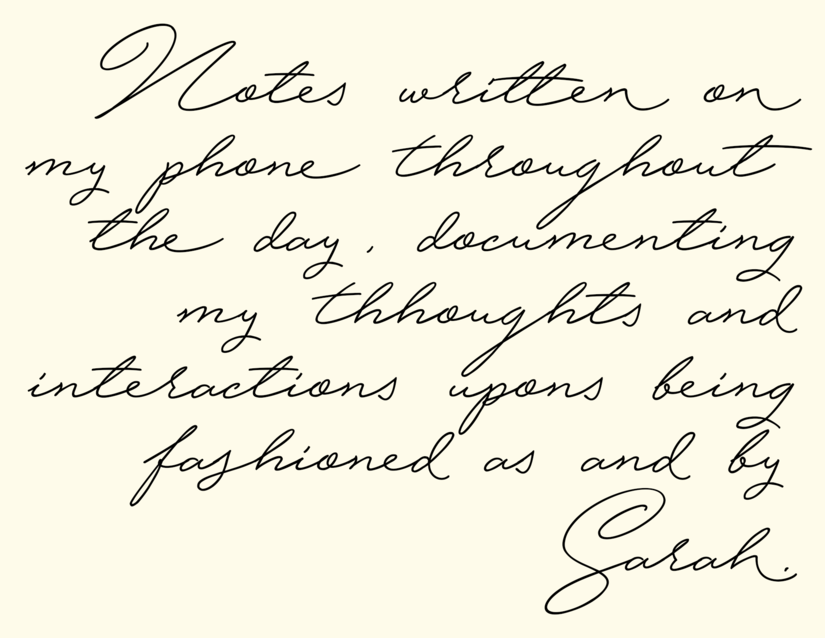 Notes written on
my phone throughout
the day, documenting
my thhoughts and
interactions upons being
fashioned as and by
Sarah.